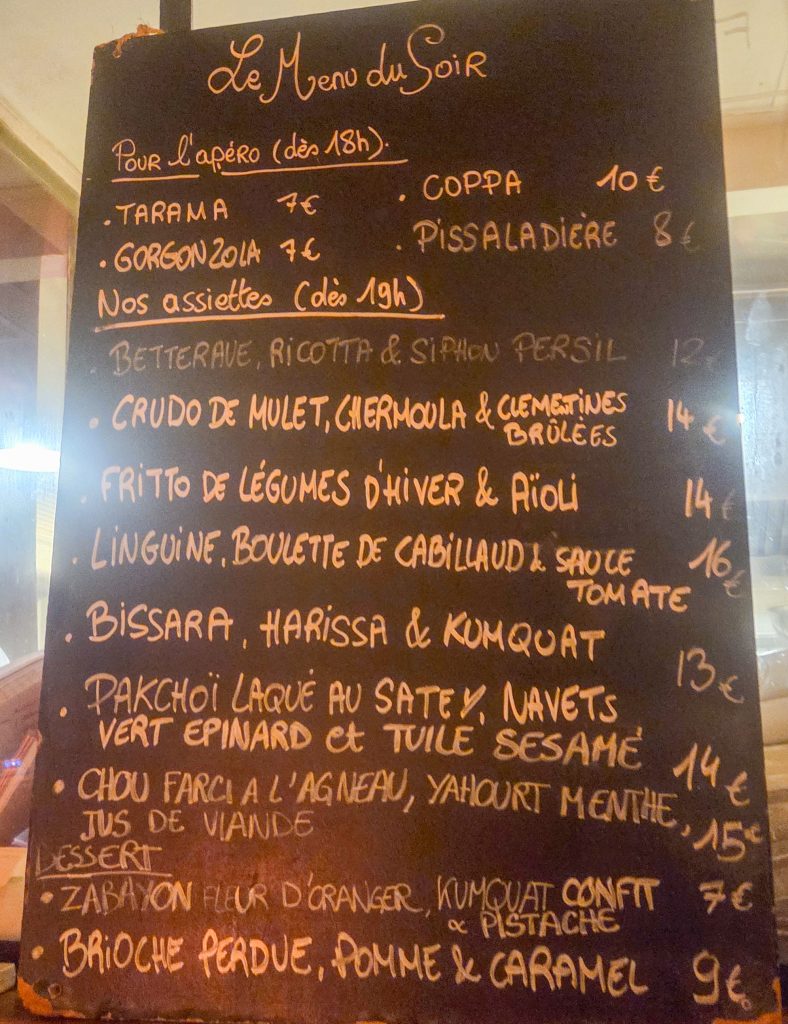 Le Menu du Soir
Pour l'apéro (dès 18h).
. TARAMA 7€ . COPPA 10€
. GORGONZOLA 7€ . PISSALADIÈRE 8€
Nos assiettes (dès 19h)
. BETTERAVE, RICOTTA & SIPHON PERSIL 12€
. CRUDO DE MULET, CHERMOULA & CLEMENTINES 14€
BRÛLÉES
. FRITTO DE LÉGUMES D'HIVER & AÏOLI 14€
. LINGUINE, BOULETTE DE CABILLAUD & SAUCE 16€
TOMATE
. BISSARA, HARISSA & KUMQUAT 13€
. PAKCHOÏ LAQUÉ AU SATEY, NAVETS
VERT EPINARD et TUILE SESAME 14€
. CHOU FARCI A L'AGNEAU, YAHOURT MENTHE,
JUS DE VIANDE 15€
DESSERT
. ZABAYON FLEUR D'ORANGER, KUMQUAT CONFIT 7€
& PISTACHE
. BRIOCHE PERDUE, POMME & CARAMEL 9€.